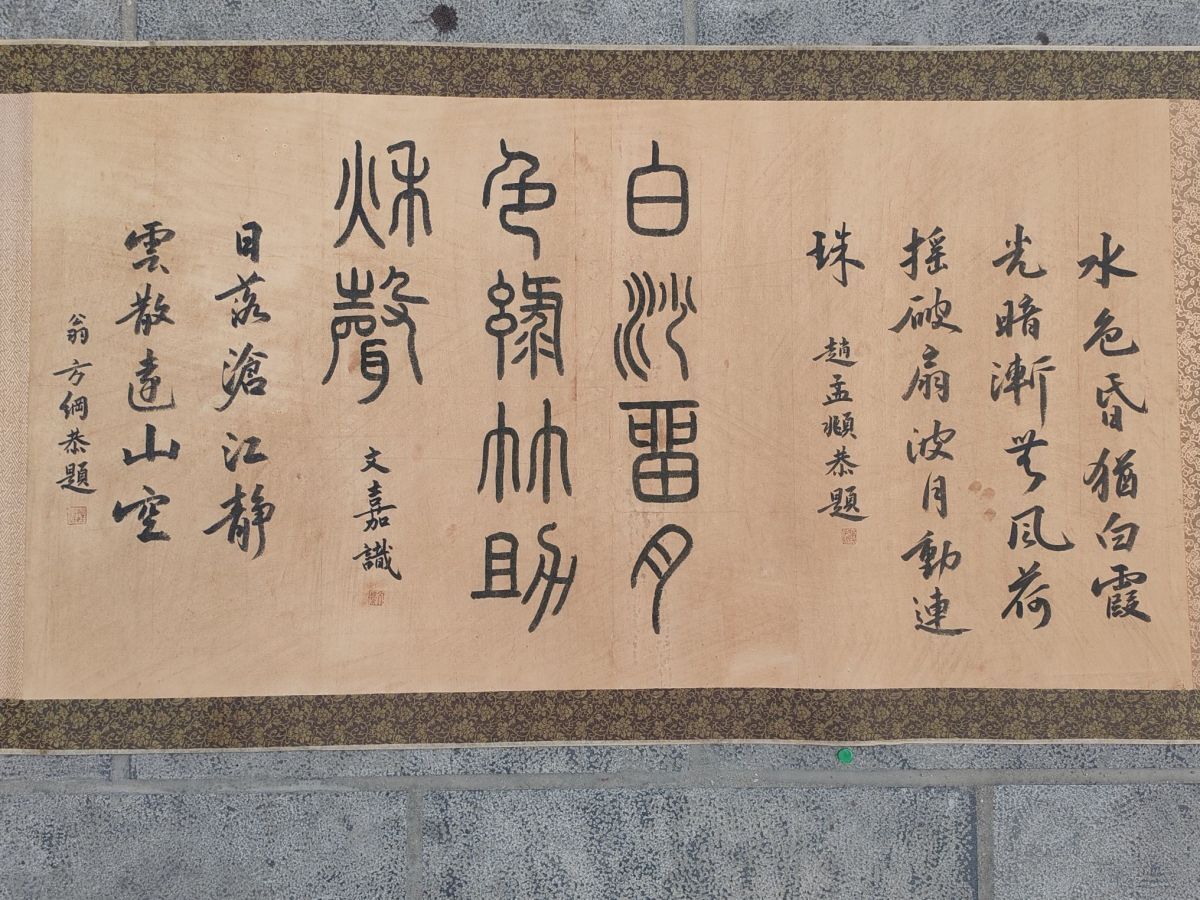 水色昏猶白霞
光暗漸無風荷
搖破扇波月動連
珠
趙孟頫恭題
白沙留月
色綠竹助
秌聲
文嘉識
日落滄江靜
雲散遠山空
翁方綱恭題